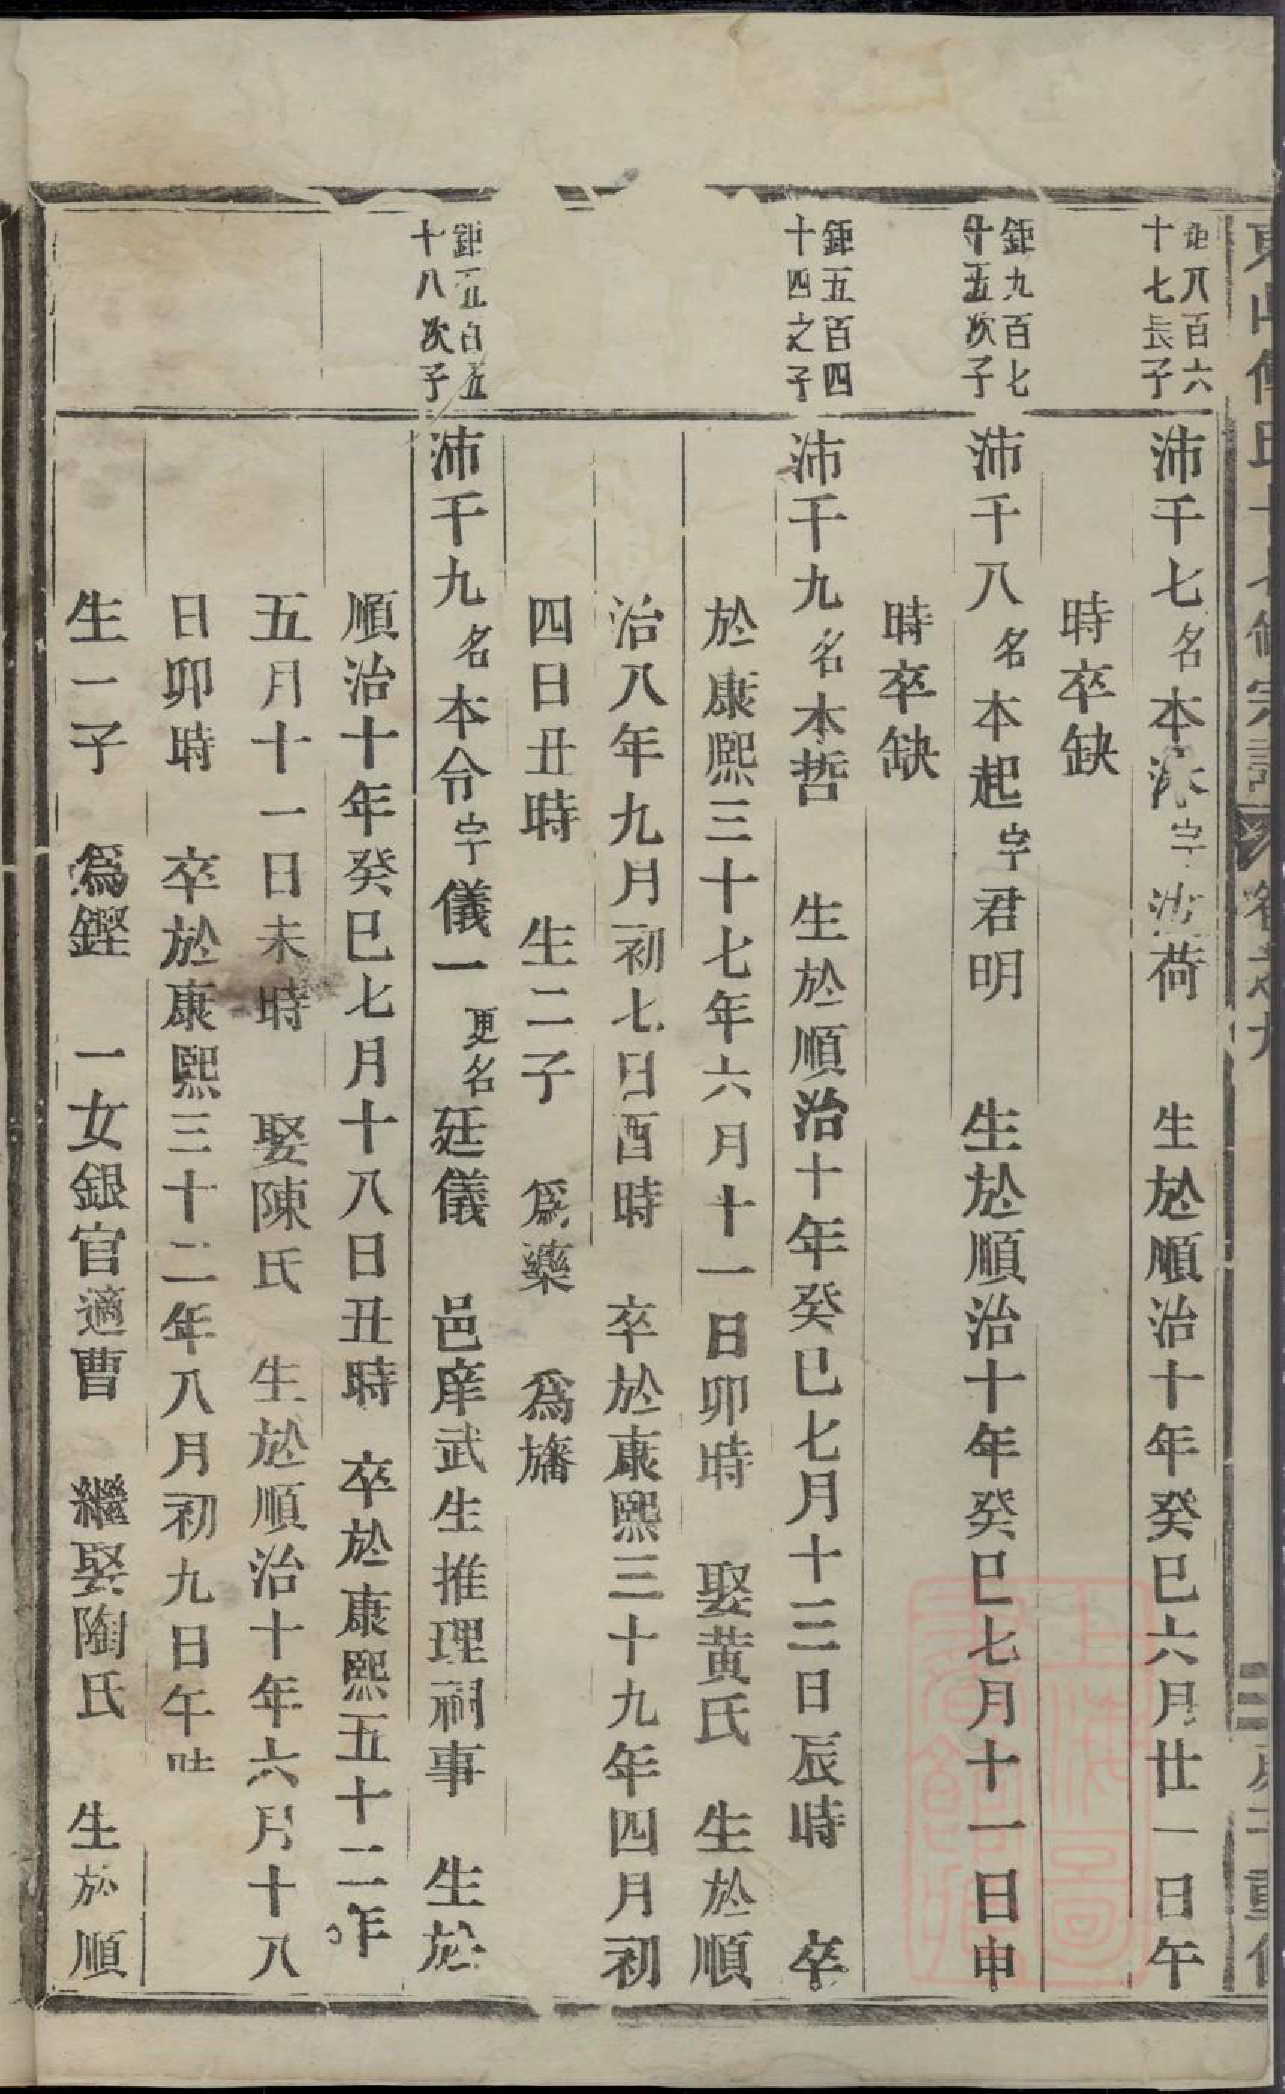 鉅八百六
十七長子
沛千七名本字荷 生於順治十年癸巳六月廿一日午
時卒缺
鉅九百七
十五次子
沛千八名本起字君明 生於順治十年癸巳七月十一日申
時卒缺
鉅五百四
十四之子
沛千九名本哲 生於順治十年癸巳七月十三日辰時 卒
於康熙三十七年六月十一日卯時 娶黄氏 生於順
治八年九月初七日酉時 卒於康熙三十九年四月初
四日丑時 生二子 爲藥 爲旛
鉅五百五
十八次子
沛千九名本令字儀一 更名廷儀 邑庠武生推理祠事 生於
順治十年癸巳七月十八日丑時 卒於康熙五十二年
五月十一日未時 娶陳氏 生於順治十年六月十八
日卯時 卒於康熙三十二年八月初九日午時
生一子 爲鏗 一女銀官適曹 繼娶陶氏 生於順